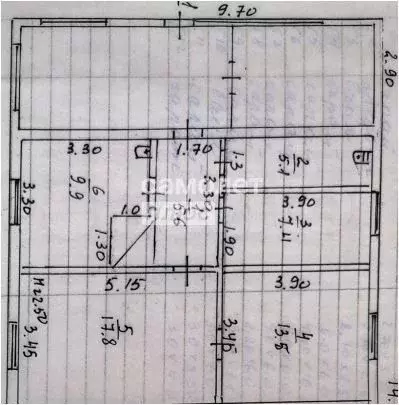 1
9.70
2.90
3.30
1.70
1.3
2
5.1
3.30
6
9.9
самолет
2.30
6.6
3.90
3
7.4
1.0
1.30
1.90
5.15
3.90
H=2.50
3.45
5
17.8
3.45
4
13.5
14.